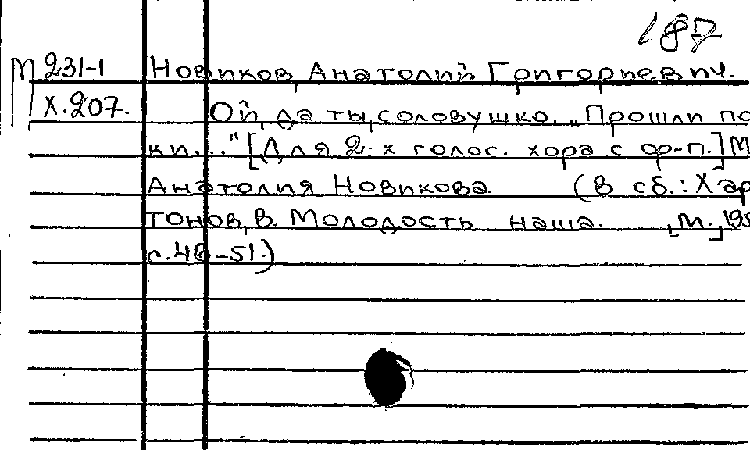 187
М 231-1 Новиков, Анатолий Григорьевич.
Х.207. Ой, да ты, соловушко. „Прошли по
ки..." [Для 2-х голос. хора с ф-п.] М
Анатолия Новикова (В сб.: Хар
тонов, В. Молодость наша. [М.], 195
с.48-51.)